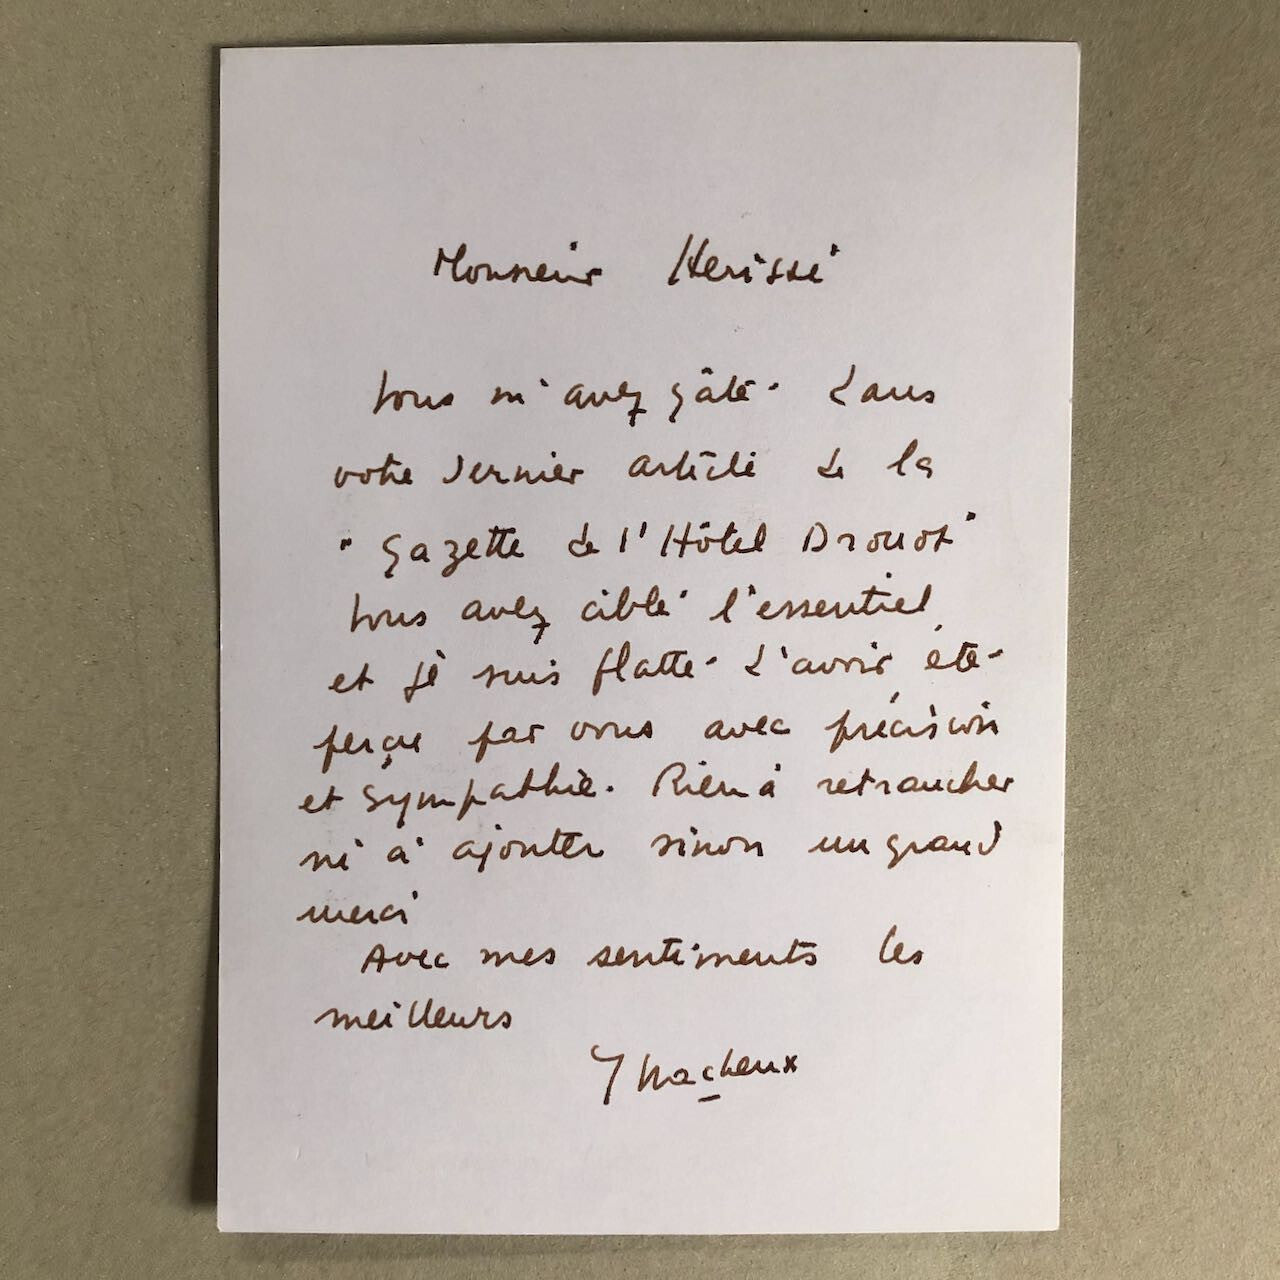 Monsieur Herissé
Vous m'avez gâté. Dans
votre dernier article de la
"Gazette de l'Hôtel Drouot"
Vous avez ciblé l'essentiel
et je suis flatté d'avoir été
perçue par vous avec précision
et sympathie. Rien à retrancher
ni à ajouter sinon un grand
merci
Avec mes sentiments les
meilleurs